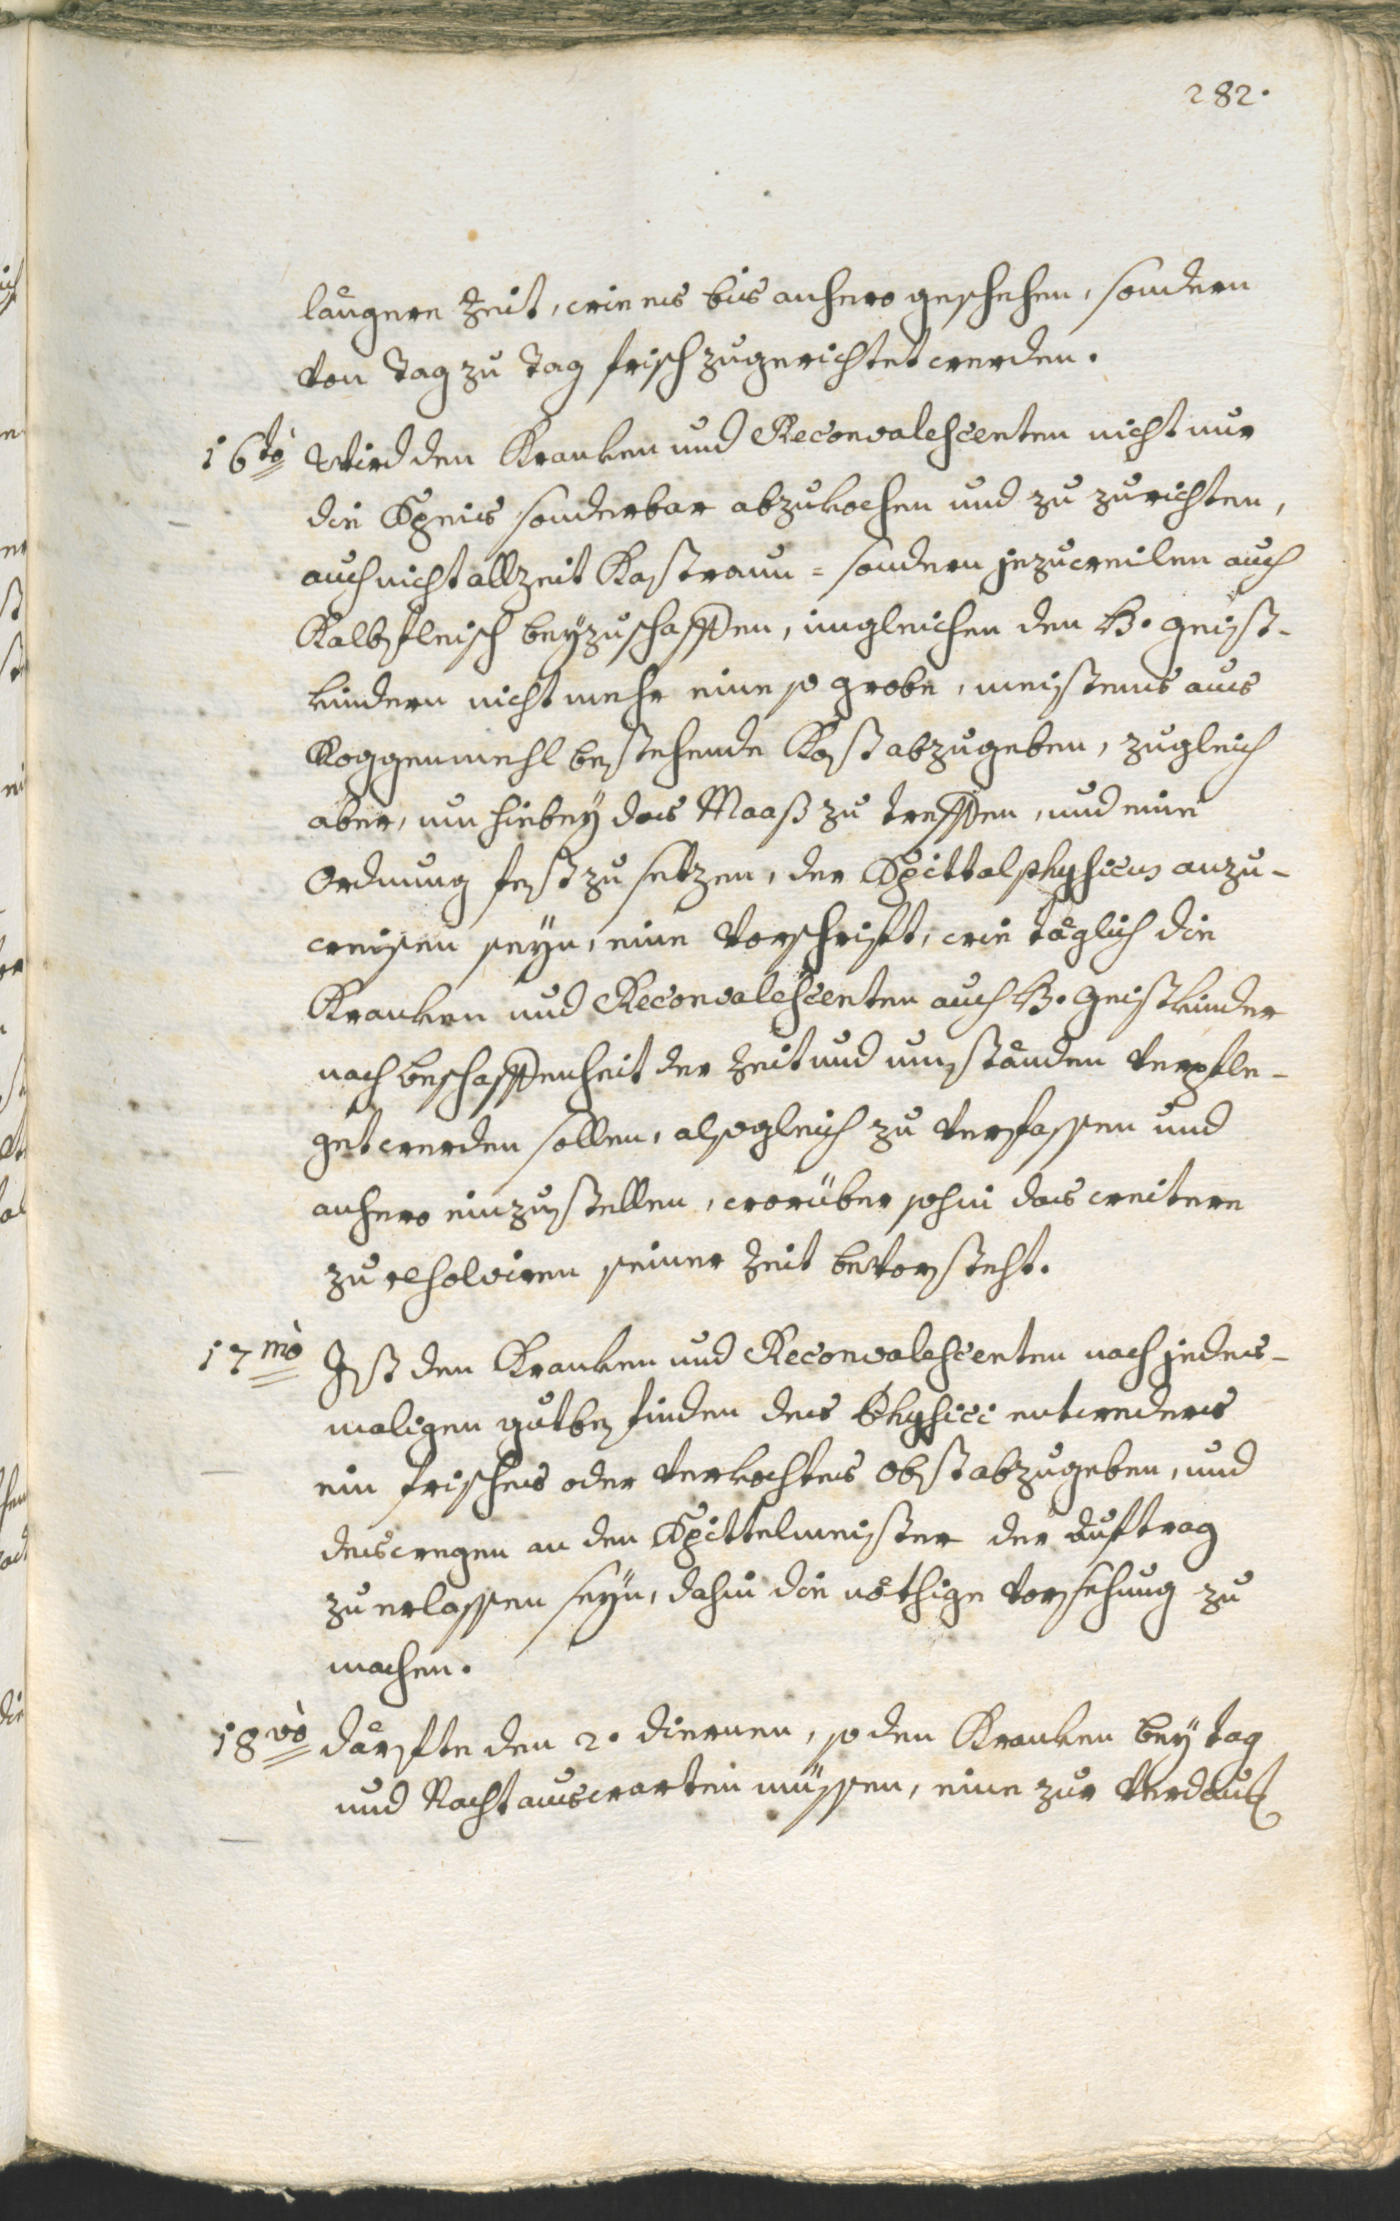 282.
längere Zeit, wie es bis anhero geschehen, sondern
von Tag zu Tag frisch zugerichtet werden.
16tò Wird den Kranken und Reconvalescenten nicht nur
die Speis sonderbar abzukochen und zu zurichten,
auch nicht allzeit Kastraun= sondern jezuweilen auch
Kalbsfleisch beyzuschaffen, imgleichen den H. Geist-
kindern nicht mehr eine so grobe, meistens aus
Roggenmehl bestehende Kost abzugeben, zugleich
aber, um hiebey das Maaß zu treffen, und eine
Ordnung fest zu setzen, der Spittalphysicus anzu-
weisen seyn, eine Vorschrift, wie täglich die
Kranken und Reconvalescenten auch H. Geistkinder
nach beschaffenheit der Zeit und umständen verpfle-
get werden sollen, alsogleich zu verfassen und
anhero einzustellen, worüber sohin das weitere
zu resolviren seiner Zeit bevorsteht.
17mò Ist den Kranken und Reconvalescenten nach jedes-
maligen gutbefinden des Physici entweders
ein frisches oder verkochtes Obst abzugeben, und
deswegen an den Spittelmeister der Auftrag
zu erlassen seyn, dahin die nöthige Vorsehung zu
machen.
18vò därfte den 2. diernen, so den Kranken bey tag
und Nacht auswarten müssen, eine zur Verdau-